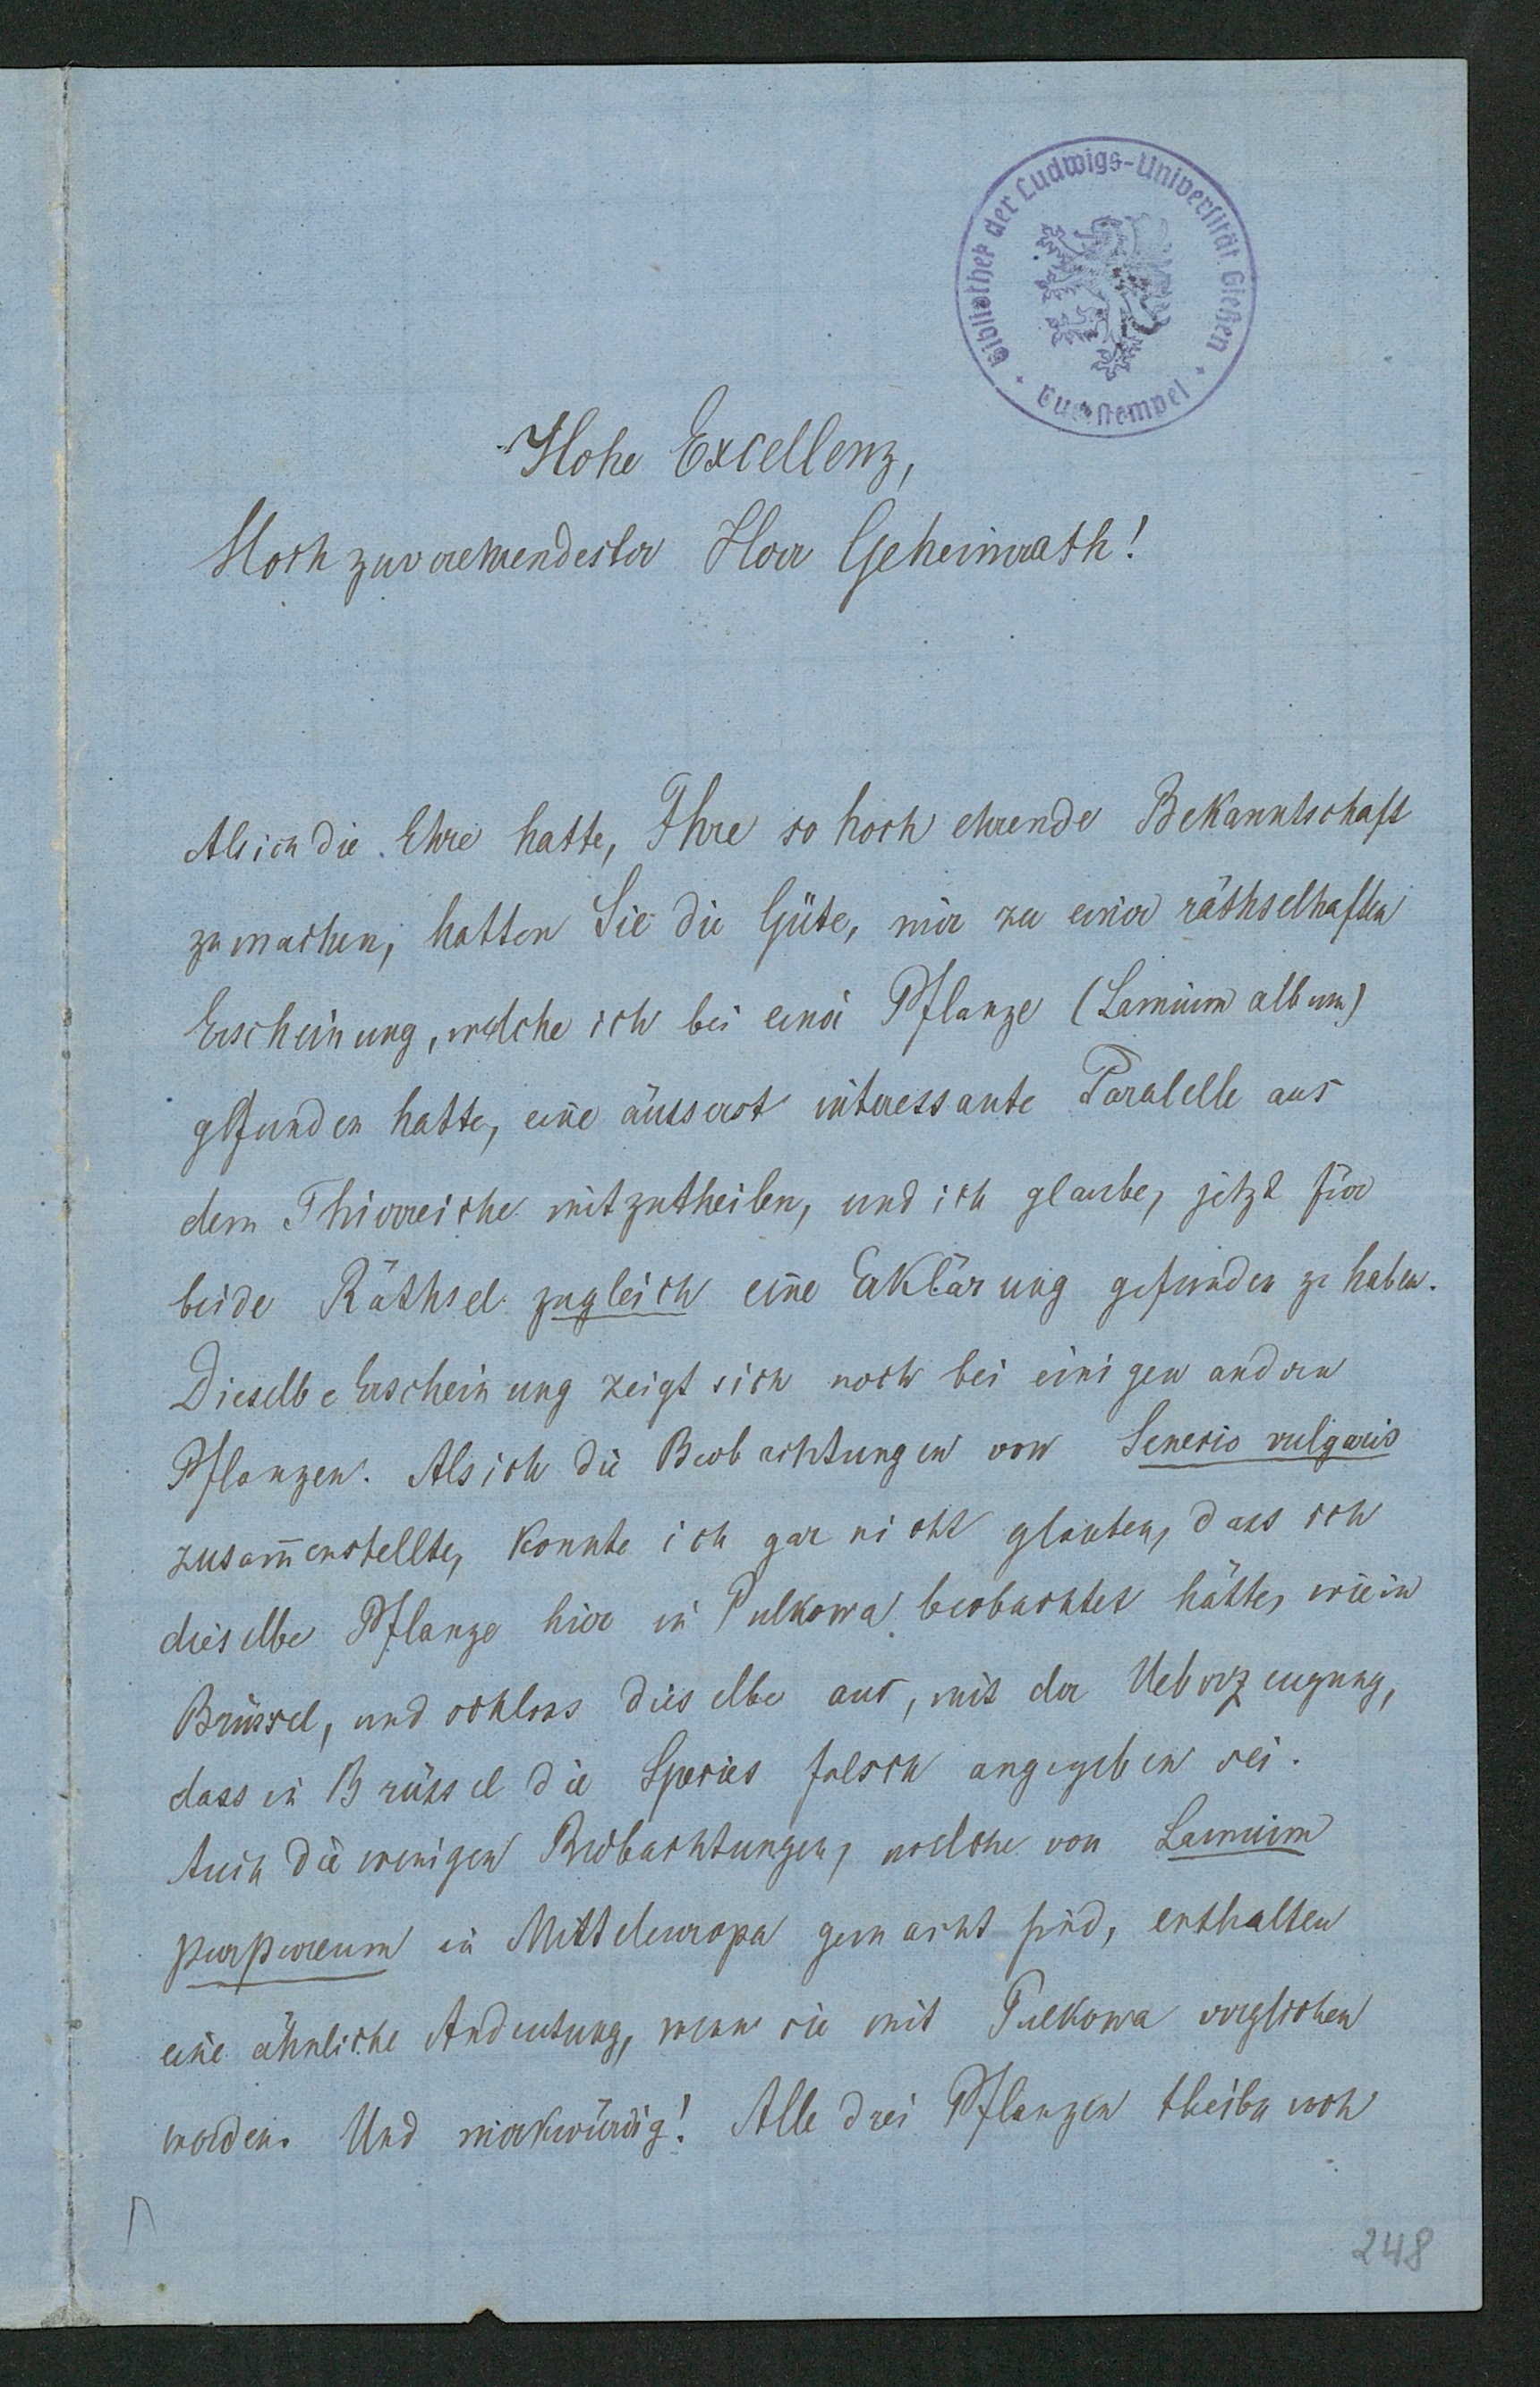 Bibliothek der Ludwigs-Universität Gießen
Buchstempel
Hohe Excellenz,
Hochzuverehrendester Herr Geheimrath!
Als ich die Ehre hatte, Ihre so hoch ehrende Bekanntschaft
zu machen, hatten Sie die Güte, mir zu einer räthselhaften
Erscheinung, welche ich bei einer Pflanze (Lamium album)
gefunden hatte, eine äusserst interessante Paralelle aus
dem Thierreiche mitzutheilen, und ich glaube, jetzt für
beide Räthsel zugleich eine Erklärung gefunden zu haben.
Dieselbe Erscheinung zeigt sich noch bei einigen andern
Pflanzen. Als ich die Beobachtungen von Senecio vulgaris
zusam̄enstellte, konnte ich gar nicht glauben, dass ich
dieselbe Pflanze hier in Pulkowa beobachtet hätte, wie in
Brüssel, und schloss dieselbe aus, mit der Ueberzeugung,
dass in Brüssel die Species falsch angegeben sei.
Auch die wenigen Beobachtungen, welche von Lamium
purpureum in Mitteleuropa gemacht sind, enthalten
eine ähnliche Andeutung, wenn sie mit Pulkowa verglichen
werden. Und merkwürdig! Alle drei Pflanzen theilen
248